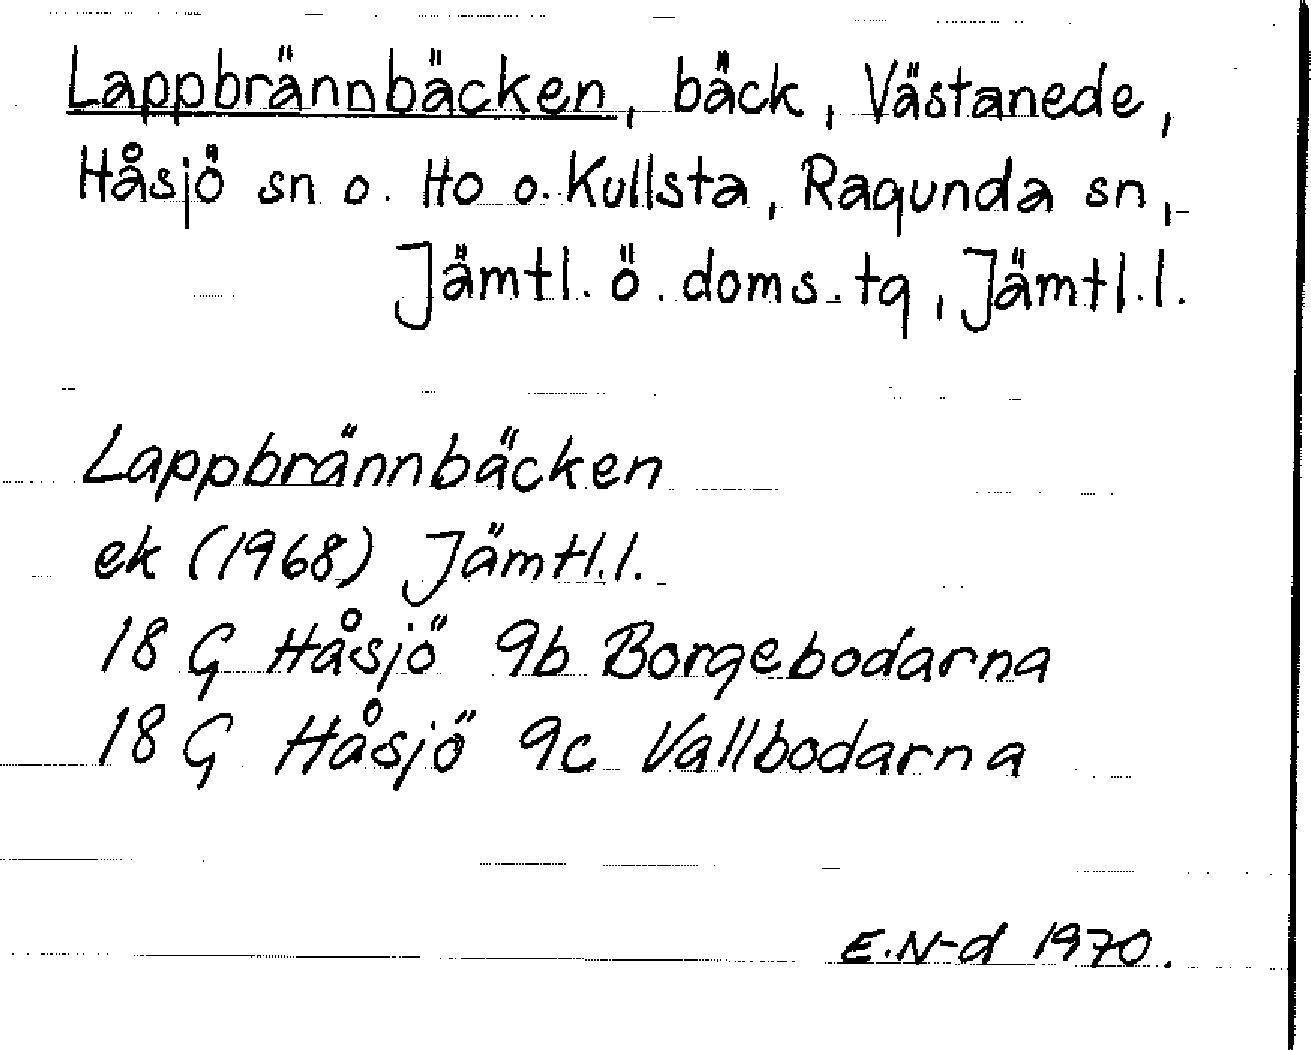 Lappbrännbäcken, bäck, Västanede,
Håsjö sn o. Ho o. Kullsta, Ragunda sn,
Jämtl. ö. doms. tg, Jämtl. l.
Lappbrännbäcken
ek (1968) Jämtl. l.
18 G Håsjö 9b Borgebodarna
18 G Håsjö 9c Vallbodarna
E.N-d 1970.